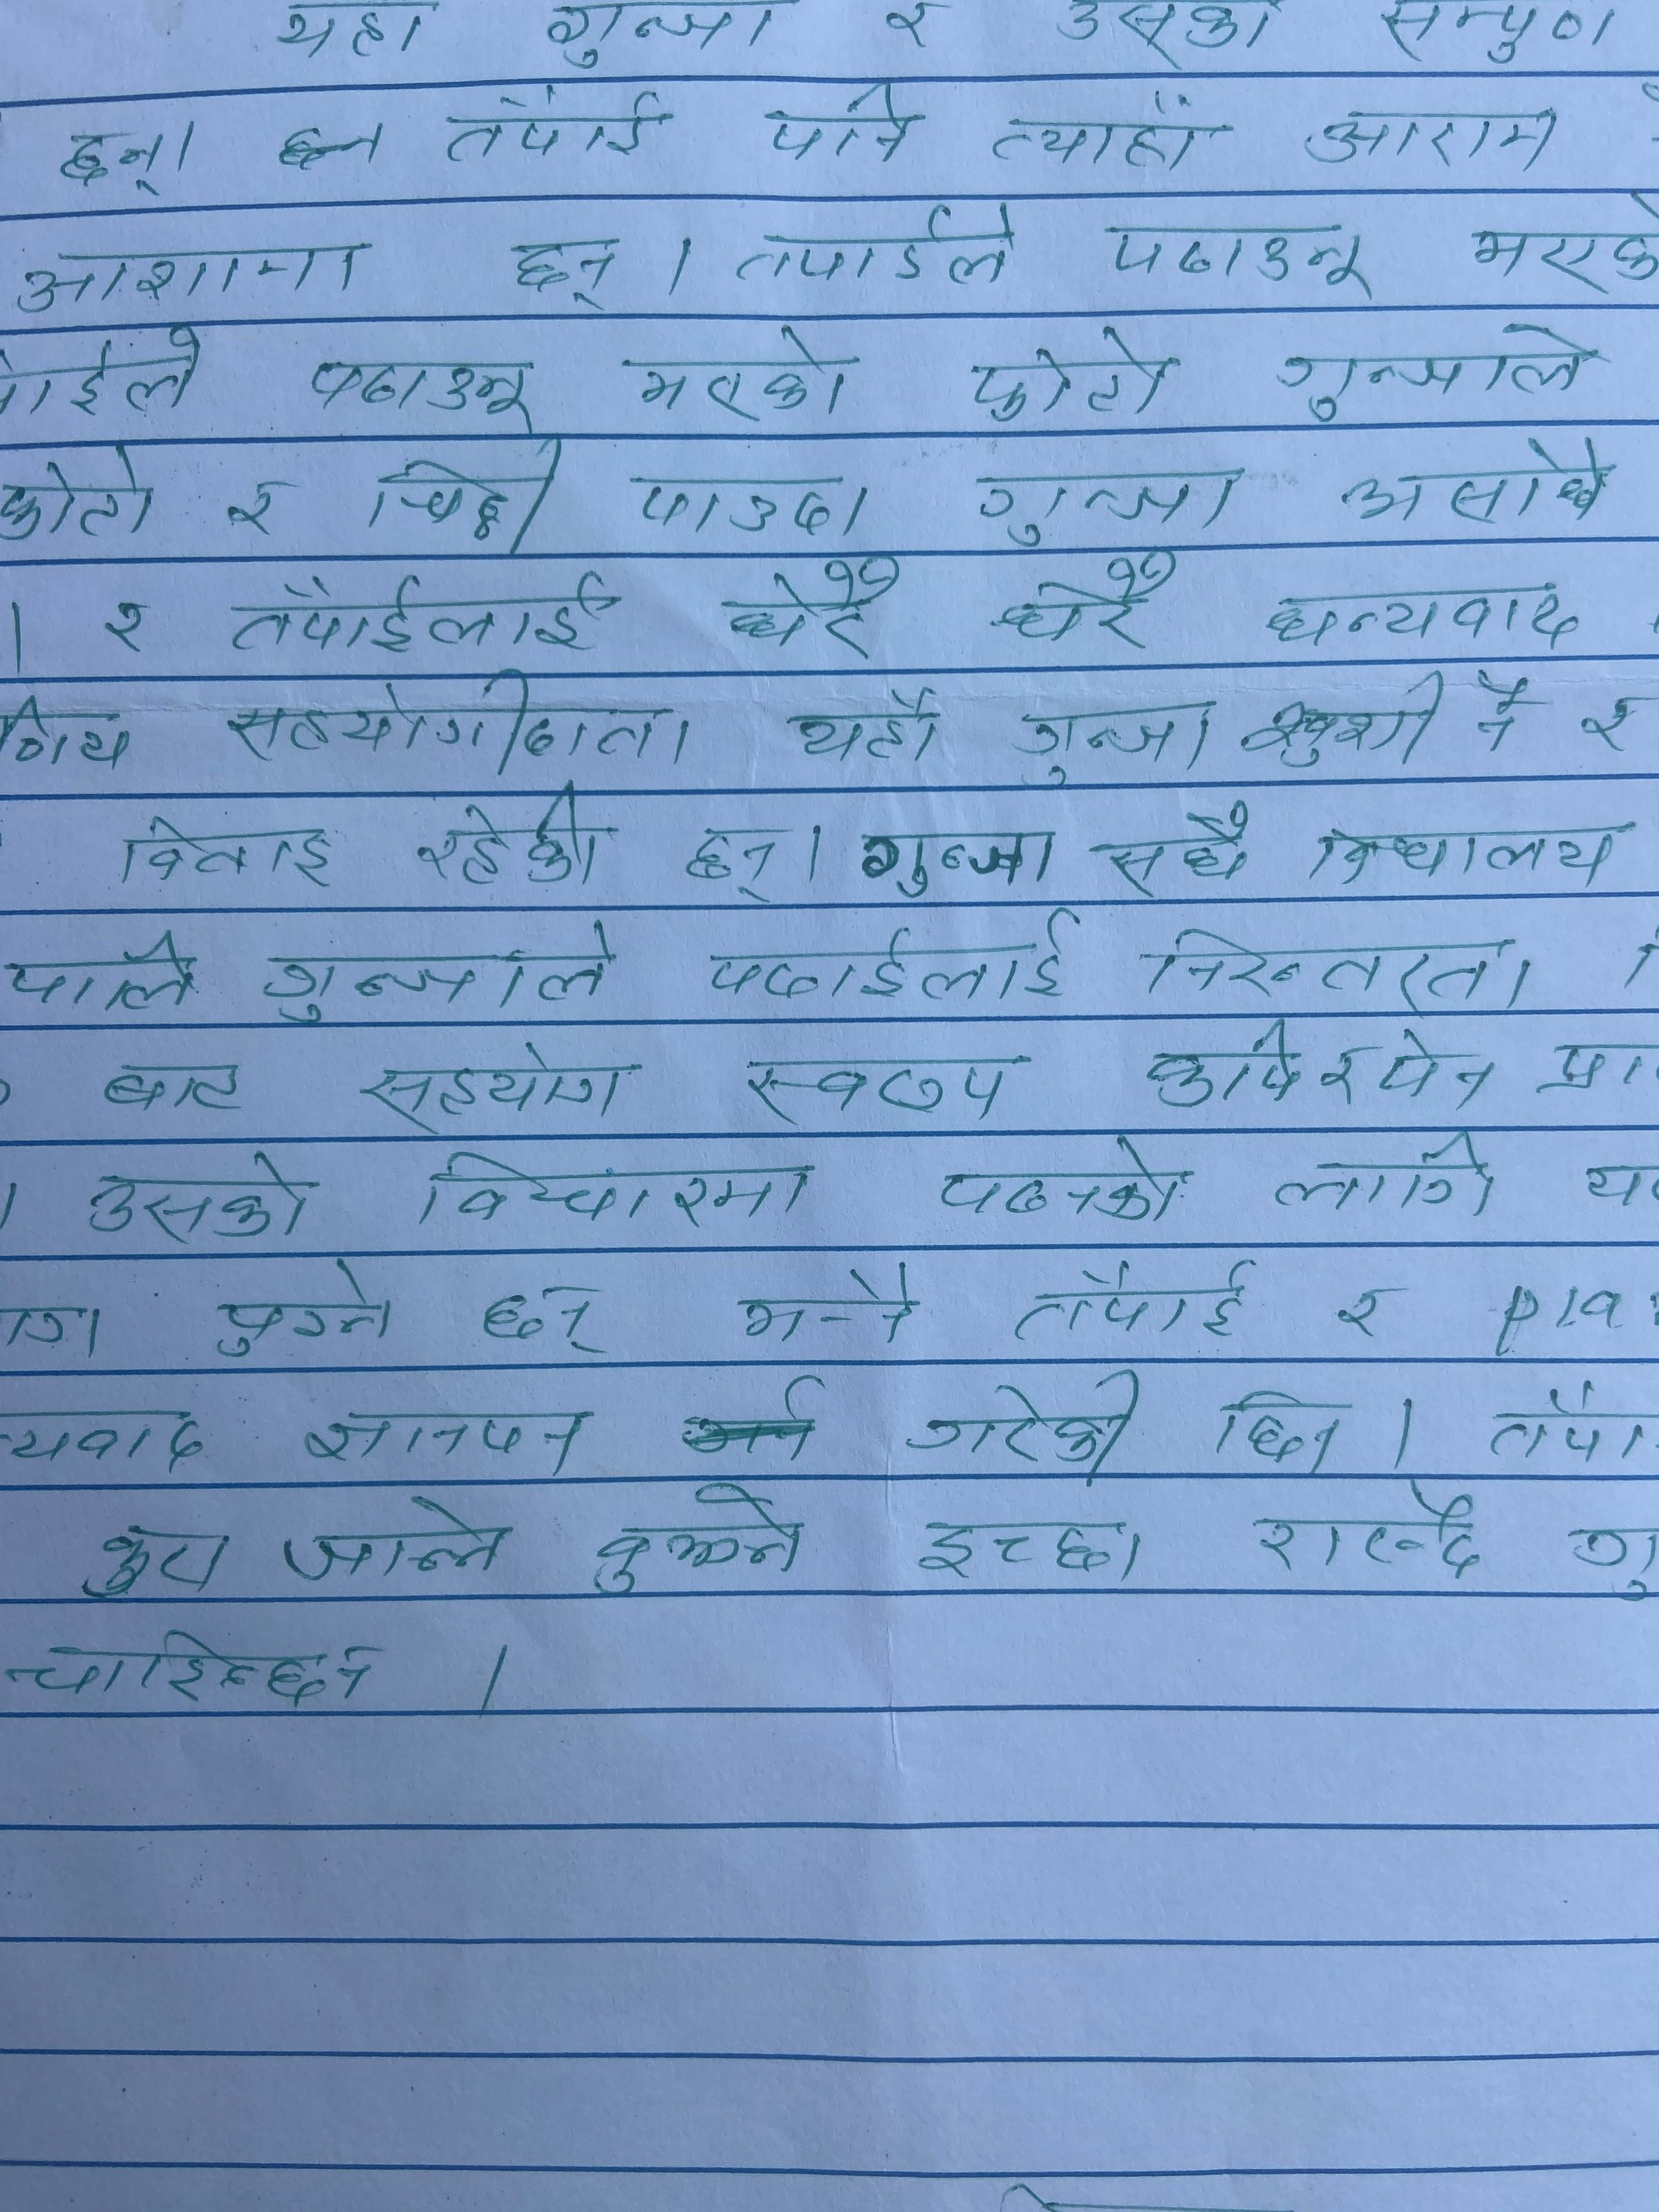 यहा गुन्जा र उसको सम्पुर्ण
छन्। तँपाई पनि त्याहाँ आराम
आशामा छन्। तपाईले पठाउनू भएको
ाईले पठाउनू भएको फोटो गुन्जाले
फोटो र चिठ्ठी पाउदा गुन्जा असाध्यै
। र तँपाईलाई धेरै धेरै धन्यवाद
सहयोगीदाता यहाँ गुन्जा खुशी नै र
बिताइ रहेकी छन्। गुन्जा सधै बिधालय
गुन्जाले पढाईलाई निरन्तरता
बाट सहयोग स्वरुप कापि र पेन
उसको विचारमा पढ्नको लागि
पुग्ने छन् भन्ने तँपाई र pla
यवाद ज्ञापन गरेकी छिन। तँपा
कुरा जान्ने बुझ्ने इच्छा राख्दै गु
चाहिन्छन ।